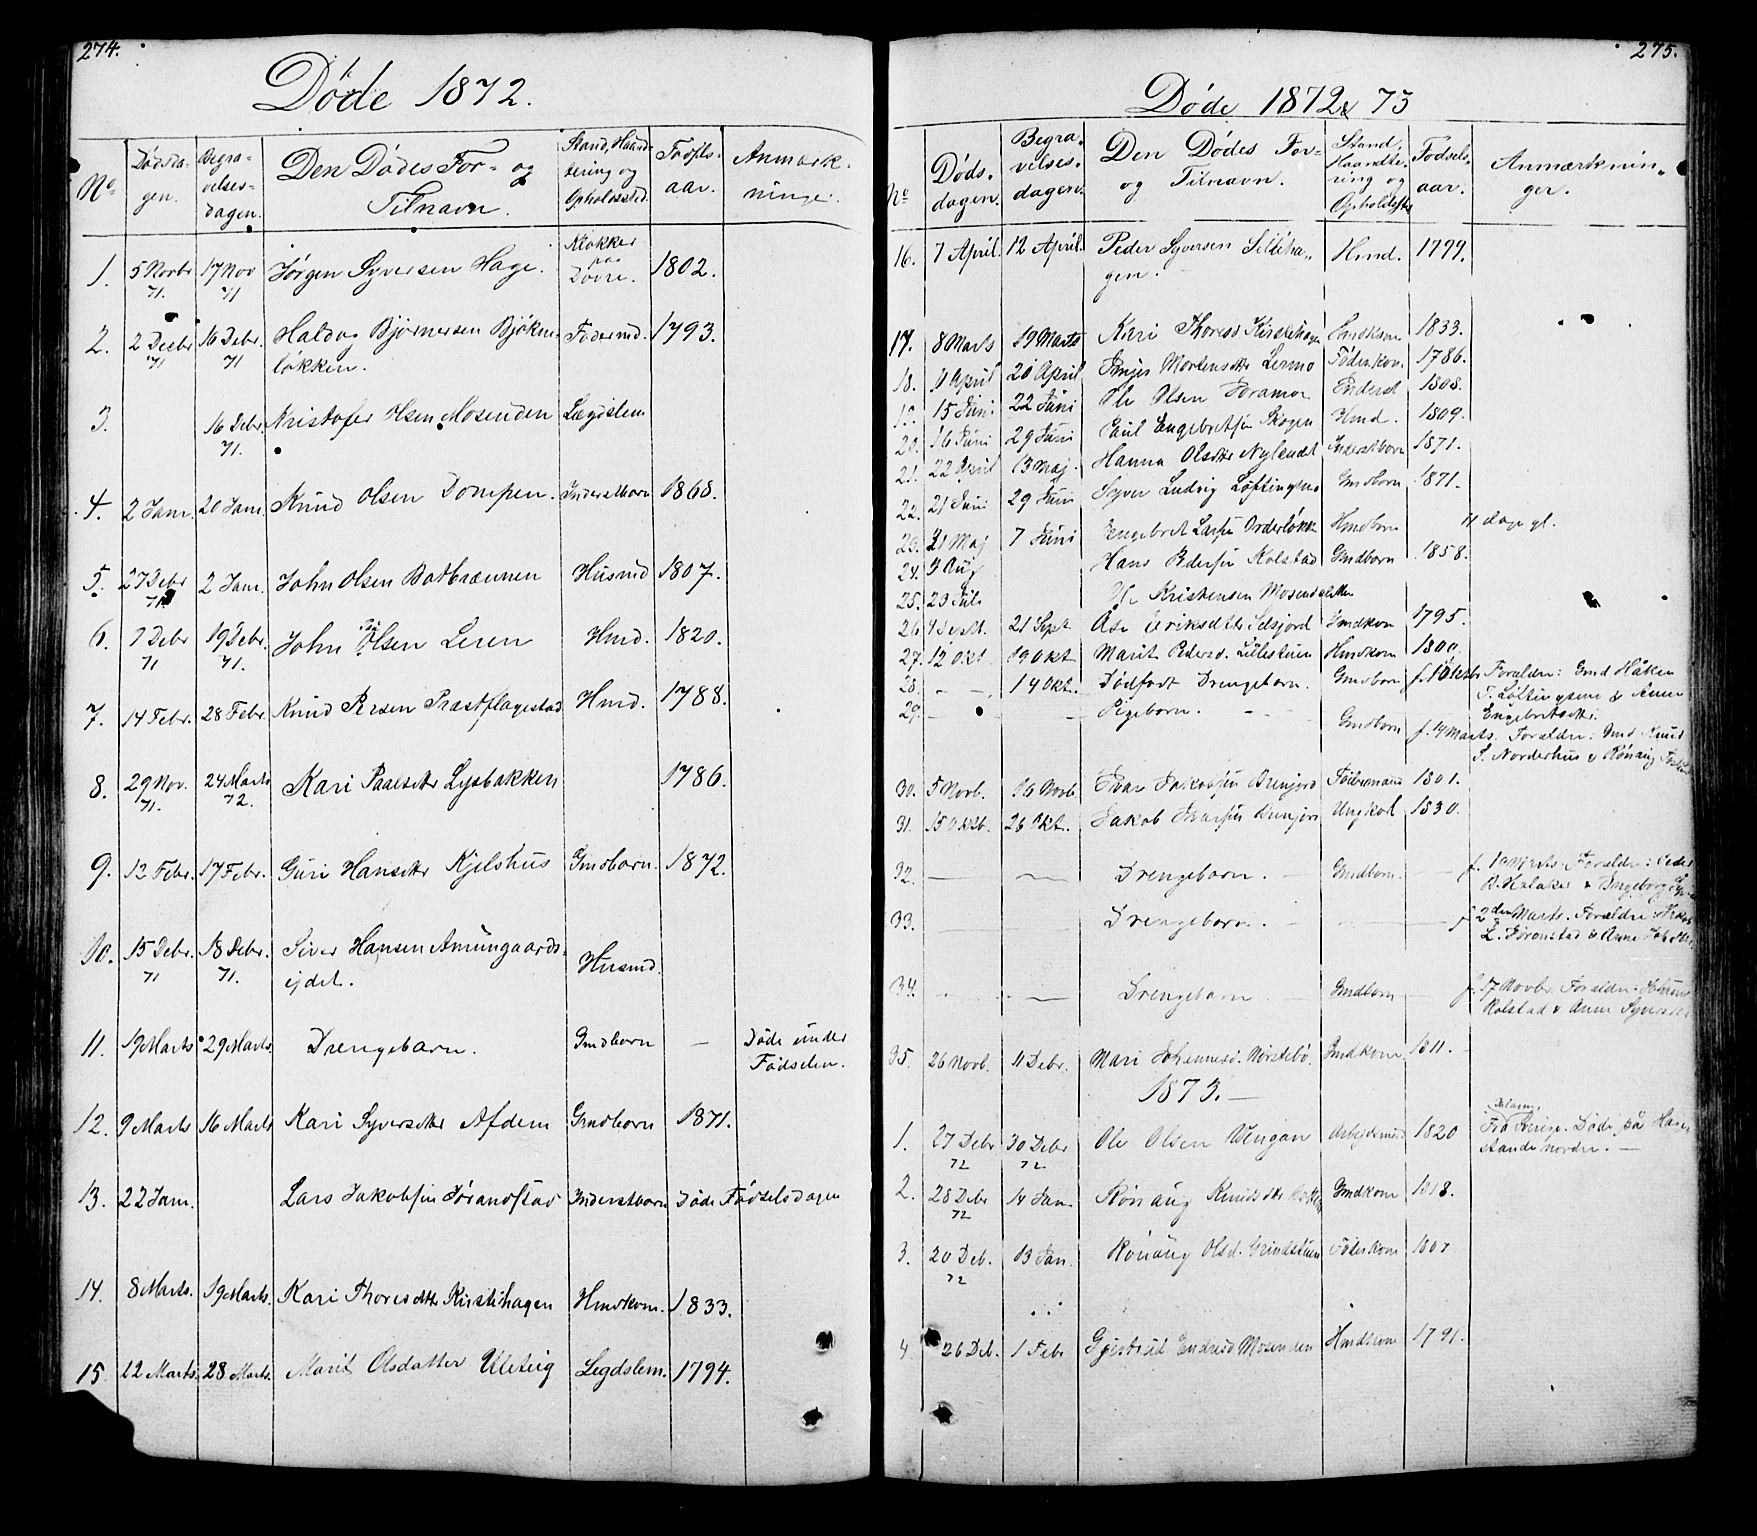 274.
Døde 1872.
No
Dødsda-
gen.
Begra-
velses-
dagen.
Den Dødes For- og
Tilnavn.
Stand, Haand-
tering og
Opholdssted.
Fødsels-
aar.
Anmærk-
ninger.
1. 5 Novbr 71. 17 Nov 71 Jørgen Syversen Hage. Klokker paa Dovre. 1802.
2. 2 Decbr 71 16 Debr. 71 Haldog Bjørnersen Bjøkne-
løkken. Fødermd. 1793.
3. 16 Debr. 71. Kristofer Olsen Mosenden Lægdslem
4. 2 Janr. 20 Janr. Knud Olsen Dompen. Inderstbarn 1868.
5. 27 Debr 71. 2 Janr. John Olsen Botbrænnen Husmd 1807.
6. 7 Debr 71 19 Debr. 71. John Olsen Leren Hmd. 1820.
7. 14 Febr. 28 Febr. Knud Persen Prestflagestad Hmd. 1788.
8. 29 Nov. 71. 24 Marts 72. Kari Paalsdtr Lysbakken 1786.
9. 12 Febr. 17 Febr. Guri Hansdtr Kjelshus Gmdbarn. 1872.
10. 15 Debr. 71 18 Debr. 71. Siver Hansen Amungaards-
ejdet. Husmd.
11. 19 Marts 29 Marts. Drengebarn. Gmdbarn — Døde under
Fødselen.
12. 9 Marts 16 Marts Kari Syversdtr Afdem Gmdbarn 1871.
13. 22 Janr. Lars Jakobsen Jørandstad Inderstbarn Døde Fødselsdagen
14. 8 Marts. 19 Marts. Kari Thoresdtr Kirstihagen Hmdkone. 1833.
15 12 Marts. 28 Marts. Marit Olsdatter Uleteig Legdslem. 1794.
275.
Døde 1872 & 73
No
Døds-
dagen.
Begra-
velses-
dagen.
Den Dødes For-
og Tilnavn.
Stand,
Haandte-
ring og
Opholdsst
Fødsels-
aar.
Anmærknin-
ger.
16. 7 April. 12 April. Peder Syversen Silliha-
gen. Hmd. 1799.
17. 8 Marts 19 Marts Kari Thoresd Kirstihagen Hmdkone 1833.
18. 11 April 20 April Mortensdtr Lermo Føderkone. 1786.
19. 15 Juni 22 Juni Ole Olsen Joramo Inderst 1808.
20. 16 Juni 29 Juni Paul Engebretsen Skogen Hmd. 1809.
21. 22 April 13 Maj. Hanna Olsdtr Nylandet Inderstbarn 1871.
22. 21 Juni 29 Juni Syver Ludvig Løftingsmo Gmdbarn 1871.
23. 31 Maj 7 Juni Engebret Larsen Hmdbarn 11 dage gl.
24. 9 Aug Hans Pedersen Kolstad Gmdbarn 1858.
25. 23 Juli Kristensen
26. Sept. 21 Sept Eriksdtr Selsjord Gmdkone 1795.
27. 12 Okt. 19 Okt Marit Pedersd. Lillestuen Hmdkone 1800.
28. - - 14 Okt. Dødfødt Drengebarn. Gmdbarn Foræld​re: Gmd Håken
T. Løftingsmo & Anne
Engebretsdtr.
29. — — Pigebarn. Gmdbarn f. 14 Marts. Forældre: Gmd Knud
S. Norderhus & Rønaug
30. 5 Novb. 16 Novb. Ivar Jakobsen Brenjord Fødermand 1801.
31. 15 Oktb. 26 Okt. Jakob Ivarsen Brenjord Ungkarl 1830.
32. — — Drengebarn. Gmdbarn. f. Marts. Forældre: Peder
& Engeborg
33. Drengebarn. — f 2den Marts. Forældre: Jakob
L. Joronstad & Anne
34. - — Drengebarn. Gmdbarn — f. 17 Novbr. Forældre:
Kolstad & Anne Syversdtr
35. 26 Novb. 11 Debr. Mari Johannesd. Nørstebø. Gmdkone 1811.
1873. —
1. 27 Debr 72 30 Debr 72 Ole Olsen Uengen Arbejdsmd 1820 Døde på
2. 28 Debr 72 14 Jan. Rønaug Knudsdtr Gmdkone 1818.
3. 20 Deb. 72 13 Jan. Rønaug Olsd. Grindstuen Føderkone 1807
4. 26 Deb. 1 Febr Gjertrud Endresd Mosenden Hmdkone 1791.